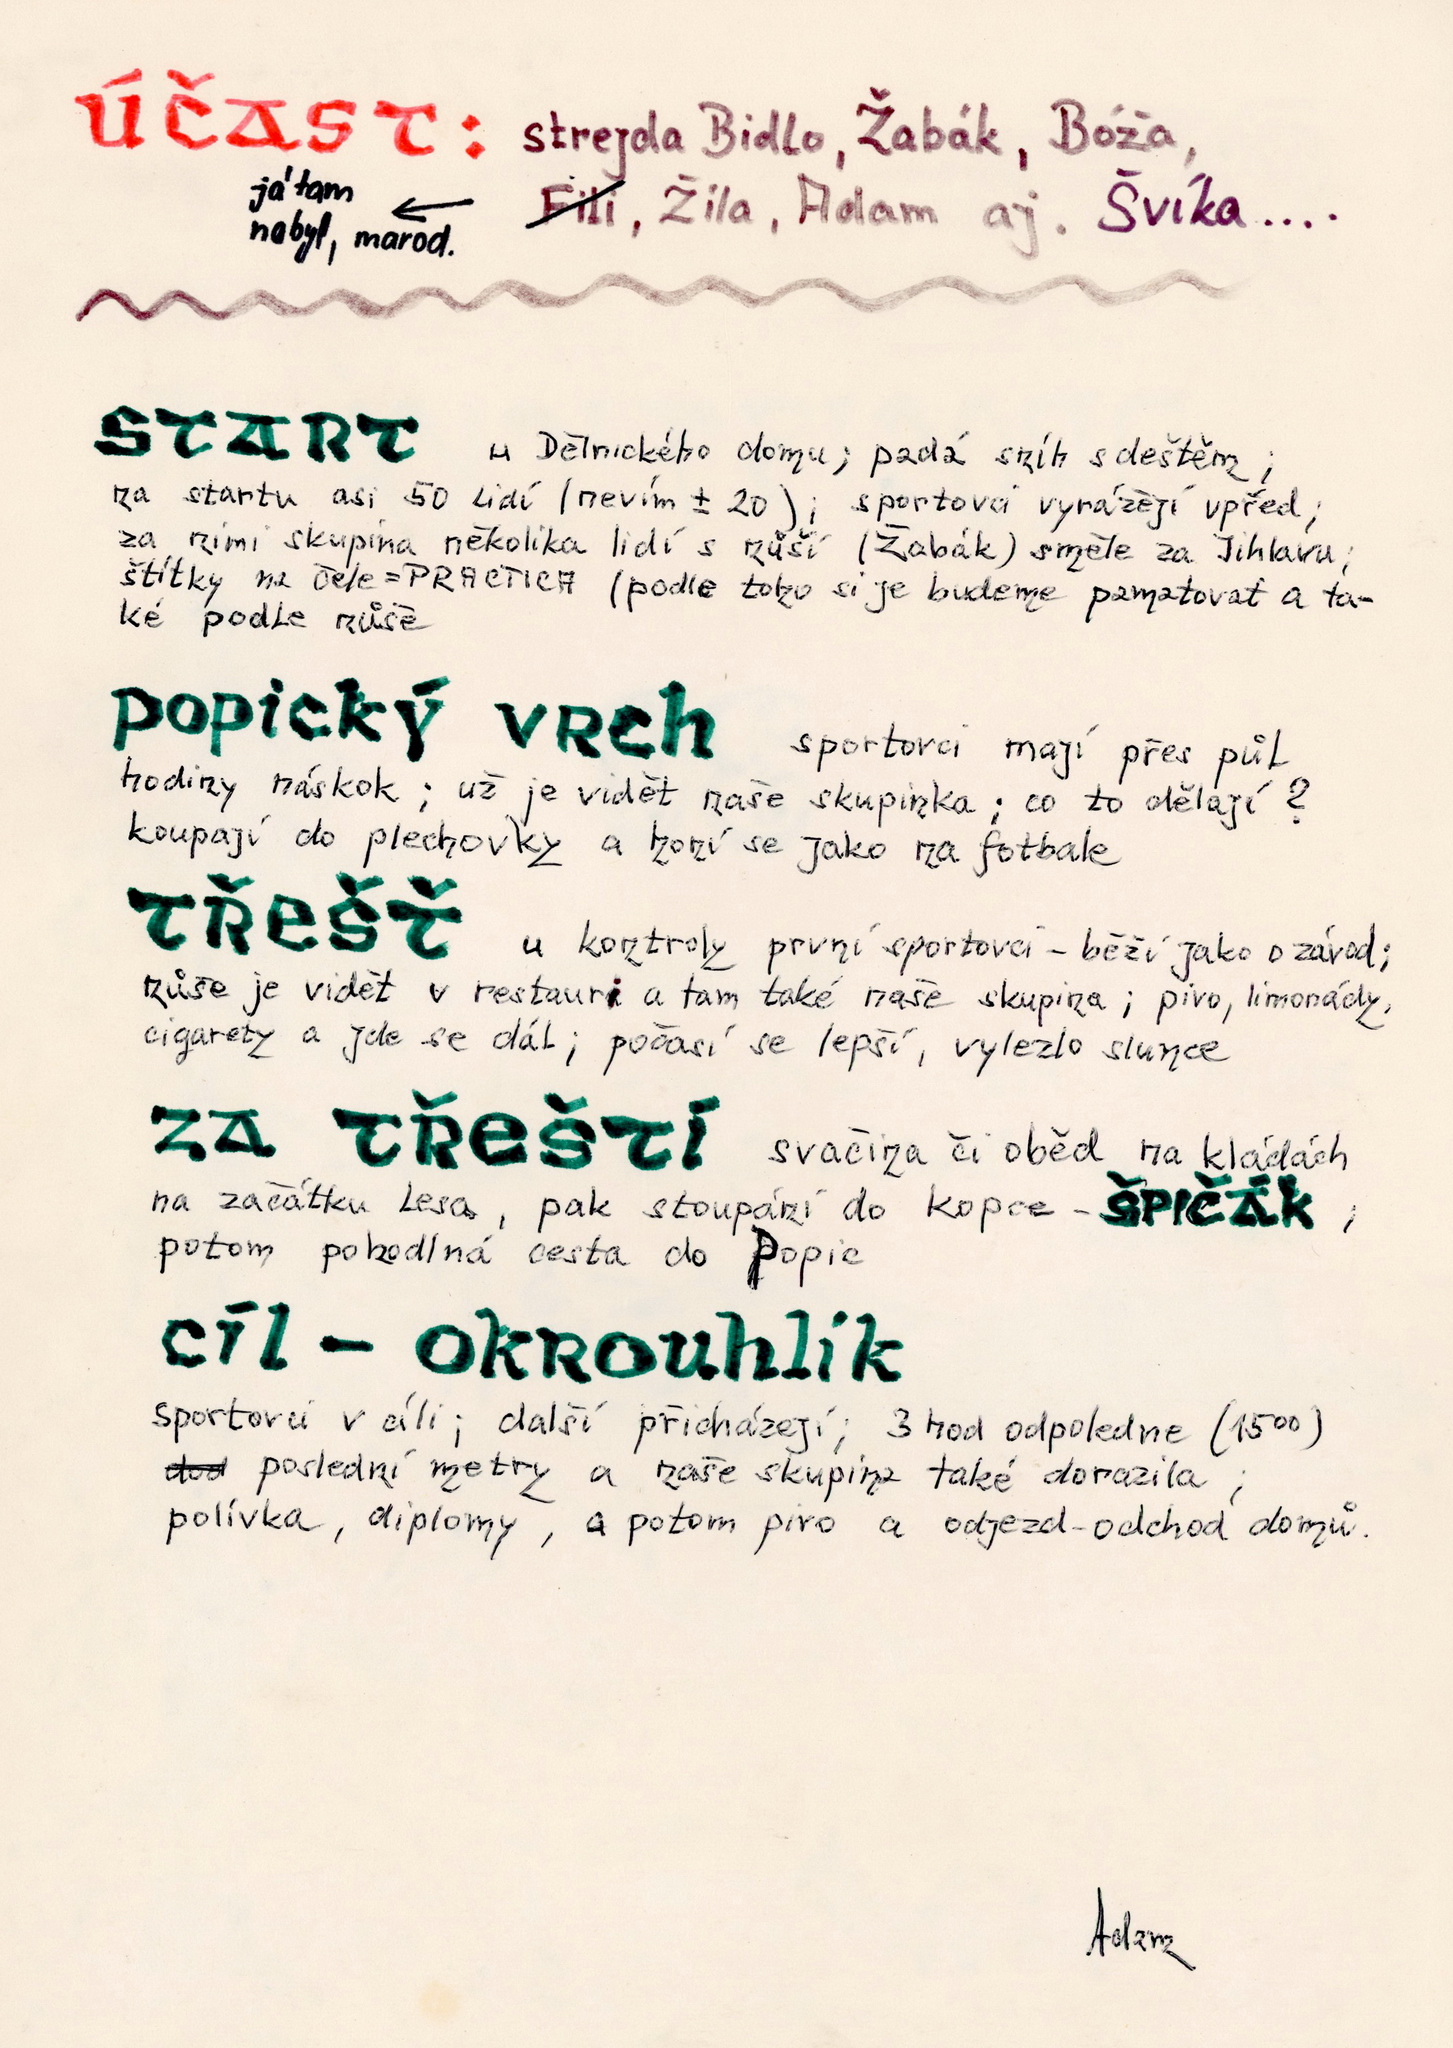 ÚČAST: strejda Bidlo, Žabák, Bóža,
Fili, Žíla, Adam aj. Švíka....
já tam
nebyl, marod.
START u Dělnického domu; padá sníh s deštěm;
na startu asi 50 lidí (nevím ± 20); sportovci vyrážejí vpřed;
za nimi skupina několika lidí s nůší (Žabák) směle za Jihlavu;
štítky na čele=PRACTICA (podle toho si je budeme pamatovat a ta-
ké podle nůše
POPICKÝ VRCH sportovci mají přes půl
hodiny náskok; už je vidět naše skupinka; co to dělají?
koupají do plechovky a honí se jako na fotbale
TŘEŠŤ u kontroly první sportovci - běží jako o závod;
nůše je vidět v restauri a tam také naše skupina; pivo, limonády,
cigarety a jde se dál; počasí se lepší, vylezlo slunce
ZA TŘEŠTÍ svačina či oběd na kládách
na začátku lesa, pak stoupání do kopce - ŠPIČÁK;
potom pohodlná cesta do Popic
CÍL - OKROUHLÍK
sportovci v cíli; další přicházejí; 3 hod odpoledne (15⁰⁰)
dod poslední metry a naše skupina také dorazila;
polívka, diplomy, a potom pivo a odjezd-odchod domů.
Adam